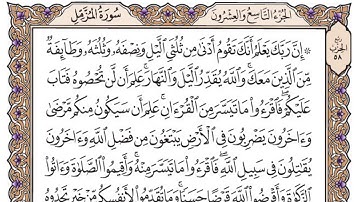 الجزء التاسع والعشرون
سورة المزمل
۞ إِنَّ رَبَّكَ يَعْلَمُ أَنَّكَ تَقُومُ أَدْنَىٰ مِن ثُلُثَيِ ٱلَّيْلِ وَنِصْفَهُۥ وَثُلُثَهُۥ وَطَآئِفَةٌ
مِّنَ ٱلَّذِينَ مَعَكَ ۚ وَٱللَّهُ يُقَدِّرُ ٱلَّيْلَ وَٱلنَّهَارَ ۚ عَلِمَ أَن لَّن تُحْصُوهُ فَتَابَ
عَلَيْكُمْ ۖ فَٱقْرَءُوا۟ مَا تَيَسَّرَ مِنَ ٱلْقُرْءَانِ ۚ عَلِمَ أَن سَيَكُونُ مِنكُم مَّرْضَىٰ
وَءَاخَرُونَ يَضْرِبُونَ فِى ٱلْأَرْضِ يَبْتَغُونَ مِن فَضْلِ ٱللَّهِ ۙ وَءَاخَرُونَ
يُقَٰتِلُونَ فِى سَبِيلِ ٱللَّهِ ۖ فَٱقْرَءُوا۟ مَا تَيَسَّرَ مِنْهُ ۚ وَأَقِيمُوا۟ ٱلصَّلَوٰةَ وَءَاتُوا۟
ٱلزَّكَوٰةَ وَأَقْرِضُوا۟ ٱللَّهَ قَرْضًا حَسَنًا ۚ وَمَا تُقَدِّمُوا۟ لِأَنفُسِكُم مِّنْ خَيْرٍ تَجِدُوهُ
ربع
الحزب
٥٨